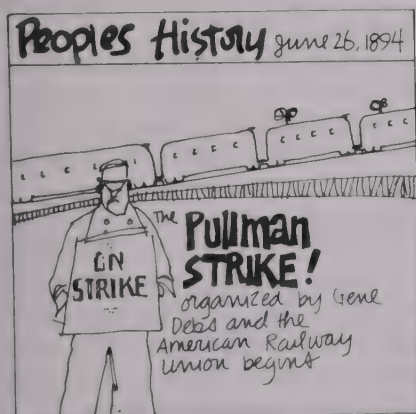 Peoples History June 26, 1894
The Pullman
STRIKE!
ON
STRIKE
organized by Gene
Debs and the
American Railway
Union begins